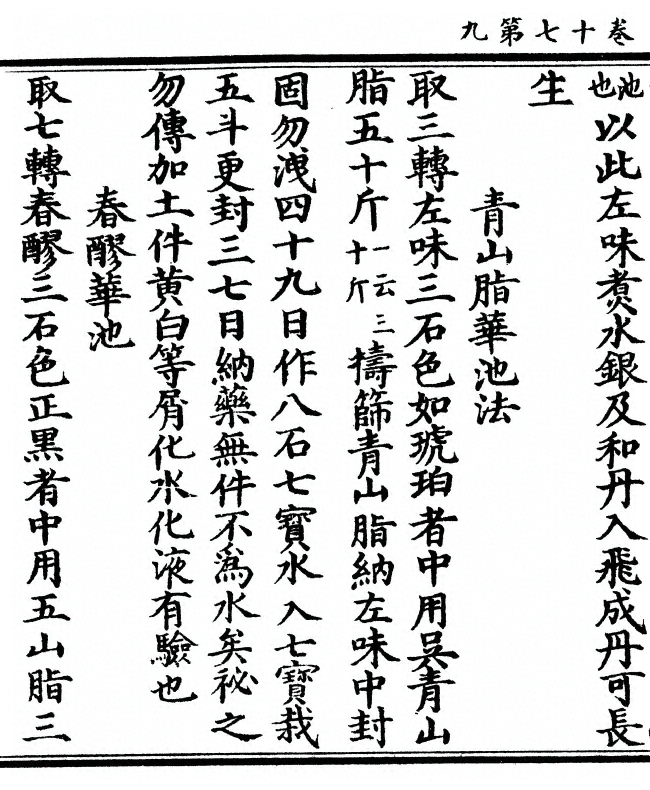 卷十七第九
池也以此左味煑水銀及和丹入飛成丹可長
生
青山脂華池法
取三轉左味三石色如琥珀者中用吳青山
脂五十斤一云三十斤擣篩青山脂納左味中封
固勿洩四十九日作八石七寶水入七寶我
五斗更封三七日納藥無件不爲水矣祕之
勿傳加土件黄白等屑化水化液有驗也
春醪華池
取七轉春醪三石色正黑者中用五山脂三